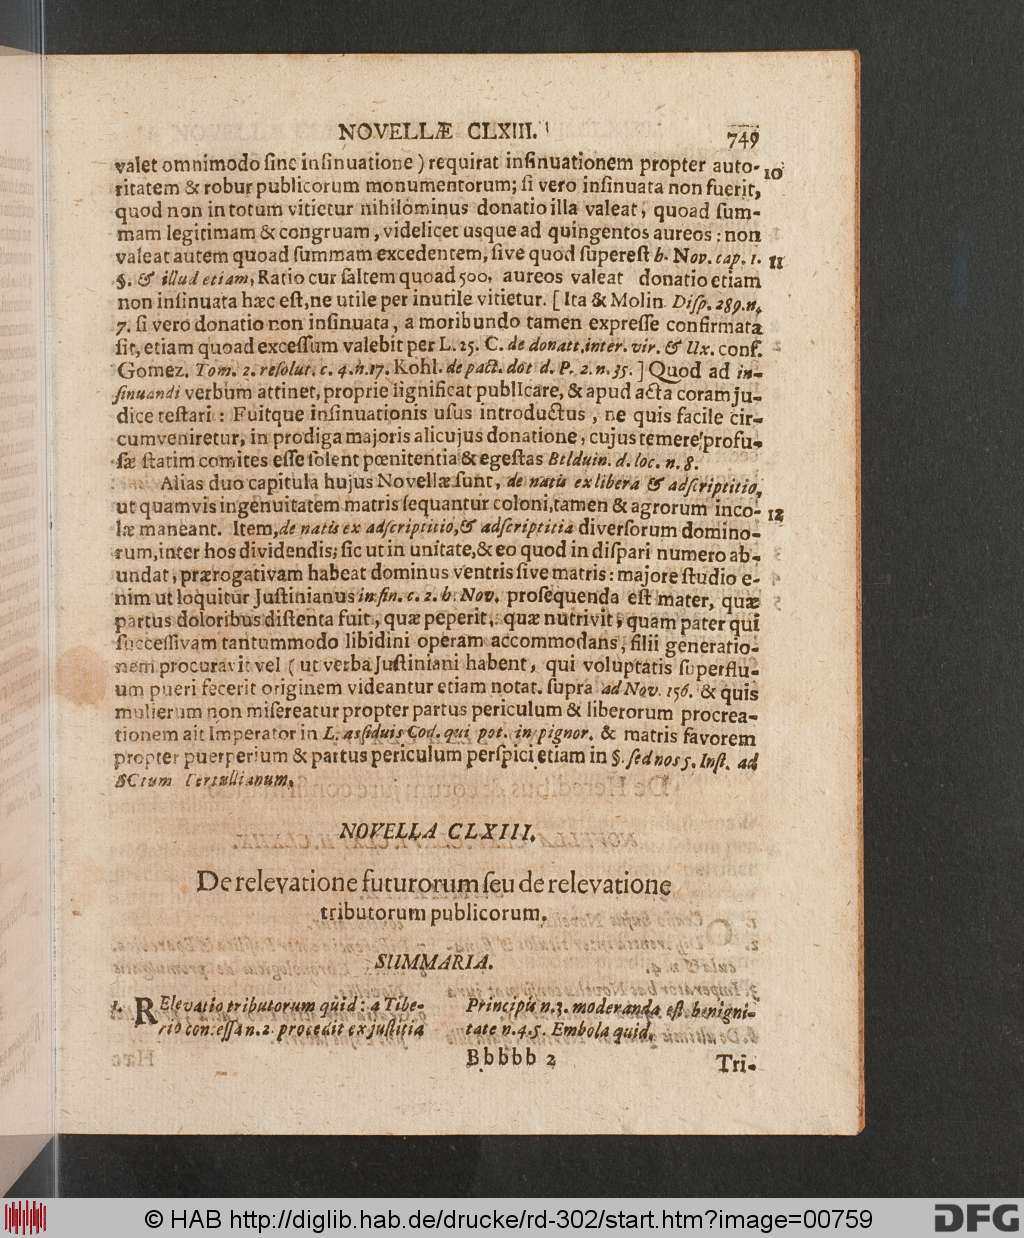 NOVELLÆ CLXIII.
749
valet omnimodo sine insinuatione) requirat insinuationem propter auto- 10
ritatem & robur publicorum monumentorum; si vero insinuata non fuerit,
quod non in totum vitietur nihilominus donatio illa valeat, quoad sum-
mam legitimam & congruam, videlicet usque ad quingentos aureos: non
valeat autem quoad summam excedentem, sive quod superest b. Nov. cap. 1. 11
§. & illud etiam, Ratio cur saltem quoad 500. aureos valeat donatio etiam
non insinuata hæc est, ne utile per inutile vitietur. [Ita & Molin Disp. 289. n.
7. si vero donatio non insinuata, a moribundo tamen expresse confirmata
sit, etiam quoad excessum valebit per L. 25. C. de donatt. inter. vir. & Ux. conf.
Gomez. Tom. 2. resolut. c. 4. n. 17. Kohl. de pact. dot d. P. 2. n. 35.] Quod ad in-
sinuandi verbum attinet, proprie significat publIcare, & apud acta coram ju-
dice testari: Fuitque insinuationis usus introductus, ne quis facile cir-
cumveniretur, in prodiga majoris alicujus donatione, cujus temere profu-
sæ statim comites esse solent pœnitentia & egestas Bllduin. d. loc. n. 8.
Alias duo capitula hujus Novellæ sunt, de natis ex libera & adscriptitio,
ut quamvis ingenuitatem matris sequantur coloni, tamen & agrorum inco- 12
læ maneant. Item, de natis ex adscriptitio, & adscriptitia diversorum domino-
rum, inter hos dividendis; sic ut in unitate, & eo quod in dispari numero ab-
undat, prærogativam habeat dominus ventris sive matris: majore studio e-
nim ut loquitur Justinianus in fin. c. 2. b. Nov. prosequenda est mater, quæ
partus doloribus distenta fuit, quæ peperit, quæ nutrivit, quam pater qui
successivam tantummodo libidini operam accommodans, filii generatio-
nem procuravit vel (ut verba Justiniani habent, qui voluptatis superflu-
um pueri fecerit originem videantur etiam notat. supra ad Nov. 156. & quis
mulierum non misereatur propter partus periculum & liberorum procrea-
tionem ait Imperator in L. assiduis Cod. qui pot. in pignor. & matris favorem
propter puerperium & partus periculum perspici etiam in §. sed nos 5. Inst. ad
SCtum Tertullianum.
NOVELLA CLXIII.
De relevatione futurorum seu de relevatione
tributorum publicorum.
SUMMARIA.
1. RElevatio tributorum quid: a Tibe-
rio concessa n. 2 procedit ex justitia
Principis n. 3. moderanda est benigni-
tate n. 4. 5. Embola quid.
Bbbbb 2
Tri-
© HAB http://diglib.hab.de/drucke/rd-302/start.htm?image=00759
DFG